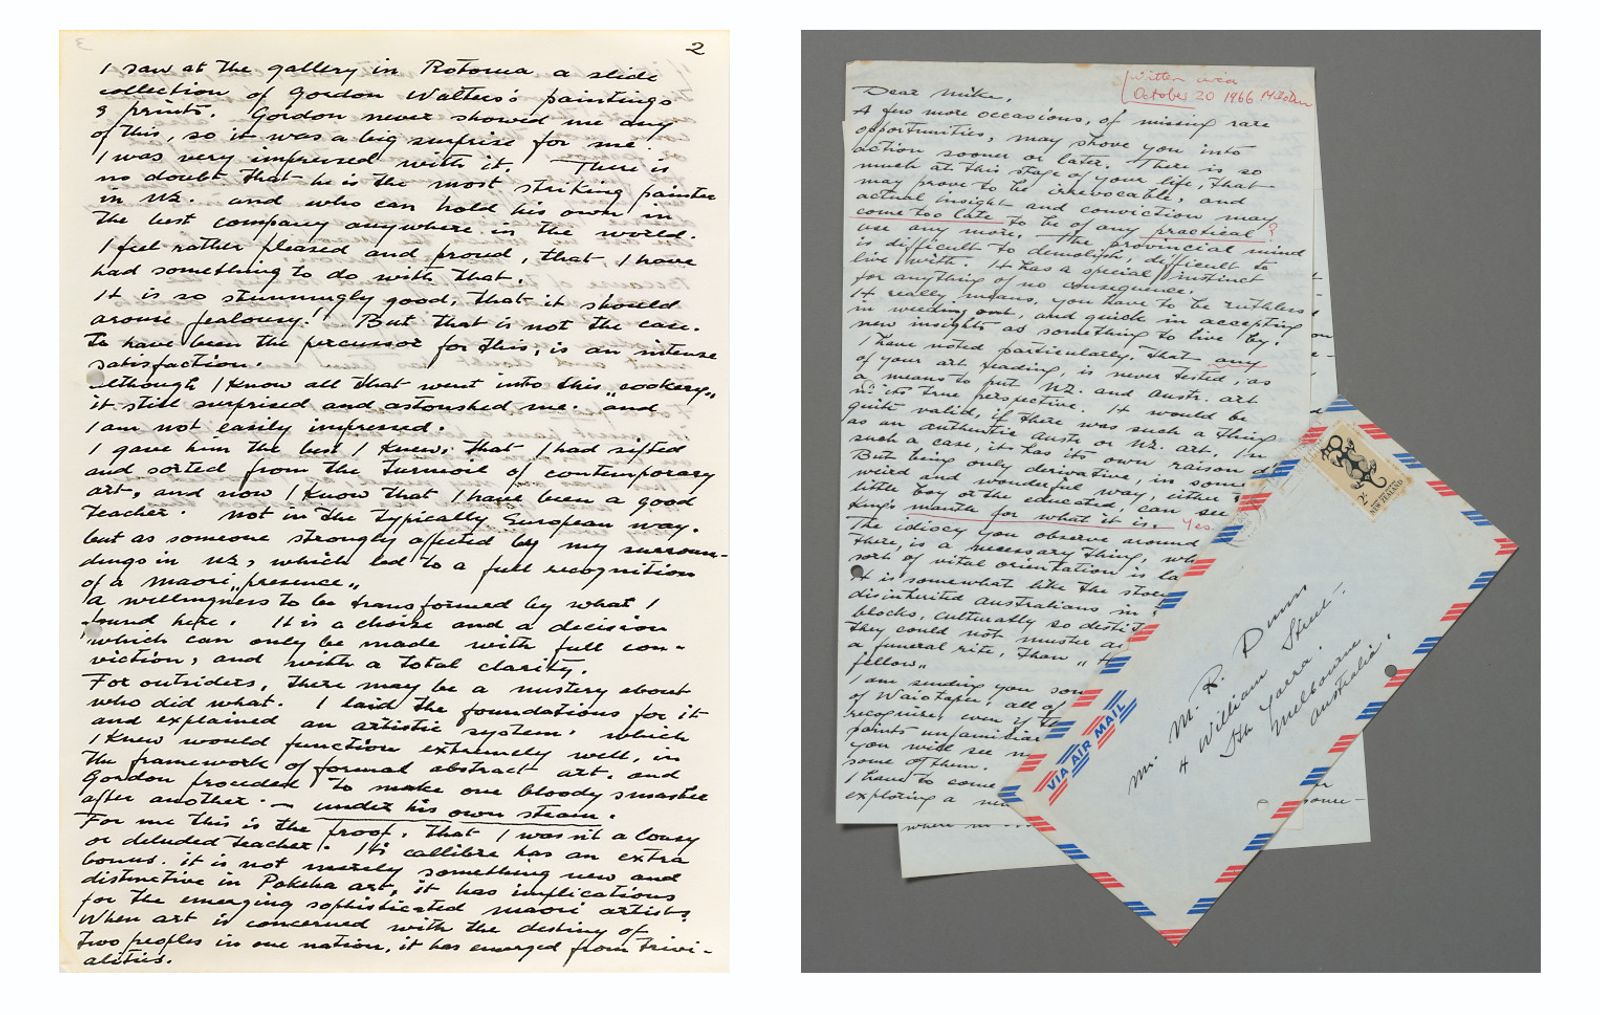 2
I saw at the gallery in Rotorua a slide
collection of Gordon Walters's paintings
& prints. Gordon never showed me any
of this, so it was a big surprise for me.
I was very impressed with it. There is
no doubt that he is the most striking painter
in NZ. and who can hold his own in
the best company anywhere in the world.
I feel rather pleased and proud, that I have
had something to do with that.
It is so stunningly good, that it should
arouse jealousy! But that is not the case.
To have been the percussor for this, is an intense
satisfaction.
Although I know all that went into this "cookery"
it still surprised and astonished me. and
I am not easily impressed.
I gave him the best I knew, that I had sifted
and sorted from the turmoil of contemporary
art, and now I know that I have been a good
teacher. Not in the typically European way.
but as someone strongly affected by my surroun-
dings in NZ, which led to a full recognition
of a maori "presence"
a willingness to be transformed by what I
found here. It is a choise and a decision
which can only be made with full con-
viction, and with a total clarity.
For outsiders, there may be a mistery about
who did what. I laid the foundations for it
and explained an artistic system, which
I knew would function extremely well, in
the framework of formal abstract art. and
Gordon proceded to make one bloody smasher
after another. — under his own steam.
For me this is the proof, that I wasn't a lousy
or deluded teacher. Its callibre has an extra
bonus. it is not merely something new and
distinctive in Pakeha art, it has implications
for the emerging sophisticated maori artists.
When art is concerned with the destiny of
two peoples in one nation, it has emerged from trivi-
alities.
written circa
October 20 1966 M
Dear Mike,
A few more occasions, of missing rare
opportunities, may shove you into
action sooner or later. There is so
much at this stage of your life, that
may prove to be irrevocable, and
actual insight and conviction may
come too late to be of any practical ?
use any more. The provincial mind
is difficult to demolish, difficult to
live with. It has a special instinct
for anything of no consequence.
It really means, you have to be ruthless
in weeding out, and quick in accepting
new insights as something to live by.
I have noted particularly, that any
of your art reading, is never tested, as
a means to put NZ. and Austr. art
in its true perspective. It would be
quite valid, if there was such a thing
as an authentic Austr or NZ. art, in
such a case, it has its own raison d
But being only derivative, in some
weird and wonderful way, either
little boy or the educated, can see
Kings mantle for what it is. Yes.
The idiocy you observe around
there, is a necessary thing, wh
sort of vital orientation is la
It is somewhat like the story
disinherited australians in
blocks, culturally so desti
they could not muster as
a funeral rite, than "
fellow"
I am sending you som
of Waiotapu, all of
recognise, even if the
paints unfamiliar
you will see
some of them.
I have to come
exploring a new
where
some-
VIA AIR MAIL
2c
NEW ZEALAND
Mr. R. Dunn
4 William Street.
Sth Yarra.
Melbourne
Australia.